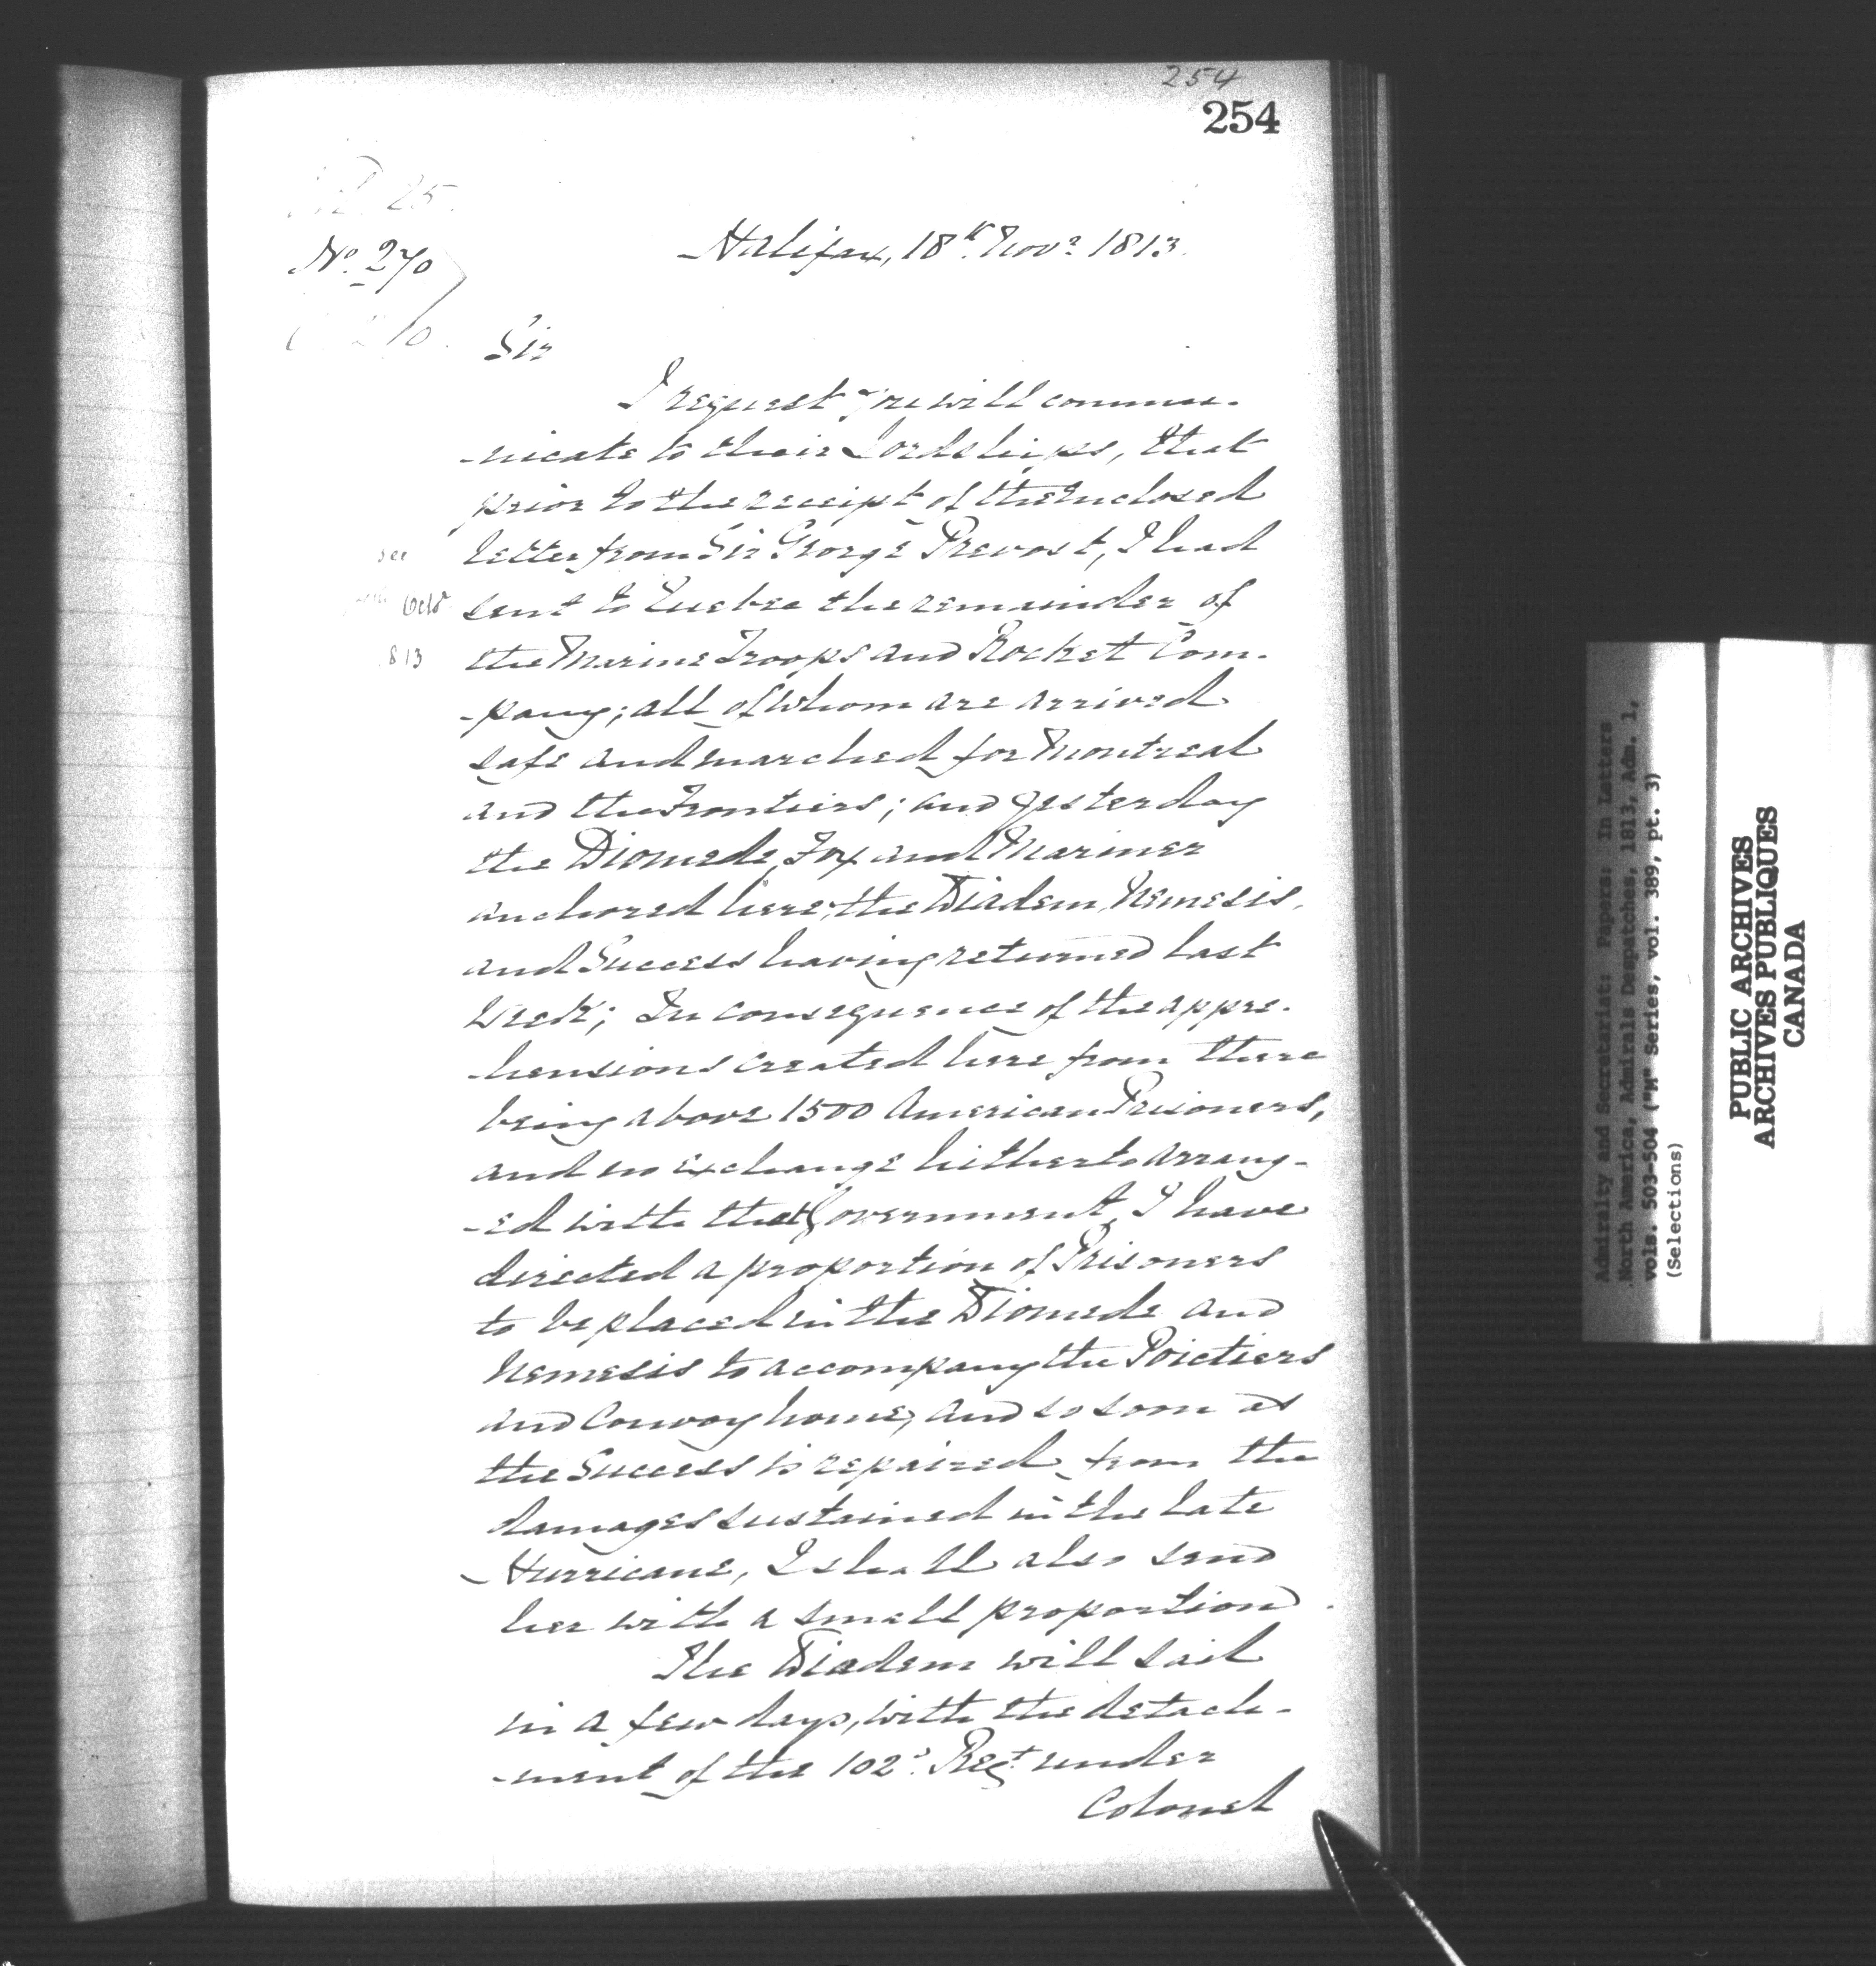 254
254
25
Nº 270
Halifax, 18th Novr 1813.
Sir
I request you will commu-
-nicate to their Lordships, that
prior to the receipt of the Inclosed
see
letter from Sir George Prevost, I had
Octo
sent to Quebec the remainder of
813
the Marine Troops and Rocket Com-
-pany; all of whom are arrived
safe and marched for Montreal
and the Frontiers; and yesterday
the Diomede, Fox and Mariner
anchored here, the Diadem, Nemesis,
and Success having returned last
Week; In consequence of the appre-
-hensions created here from there
being above 1500 American Prisoners,
and no exchange hitherto arrang-
-ed with that Government, I have
directed a proportion of Prisoners
to be placed in the Diomede and
Nemesis to accompany the Poictiers
and Convoy home, and so soon as
the Success is repaired from the
damages sustained in the late
Hurricane, I shall also send
her with a small proportion.
The Diadem will sail
in a few days, with the detach-
-ment of the 102d Regt under
Colonel
Admiralty and Secretariat: Papers: In Letters
North America, Admirals Despatches, 1813, Adm. 1,
vols. 503-504 ("M" Series, vol. 389, pt. 3)
(Selections)
PUBLIC ARCHIVES
ARCHIVES PUBLIQUES
CANADA